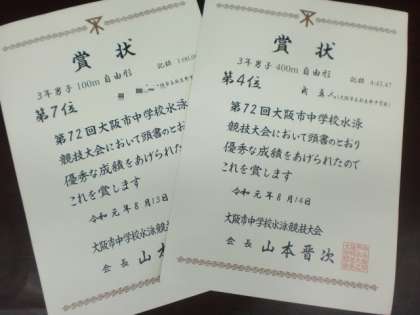 賞状
3年男子100m自由形
記録
第7位
第72回大阪市中学校水泳
競技大会において頭書のとおり
優秀な成績をあげられたので
これを賞します
令和元年8月15日
大阪市中学校水泳競技大会
会長 山本
賞状
3年男子400m自由形
記録 4:43.47
第4位
第72回大阪市中学校水泳
競技大会において頭書のとおり
優秀な成績をあげられたので
これを賞します
令和元年8月16日
大阪市中学校水泳競技大会
会長 山本晋次